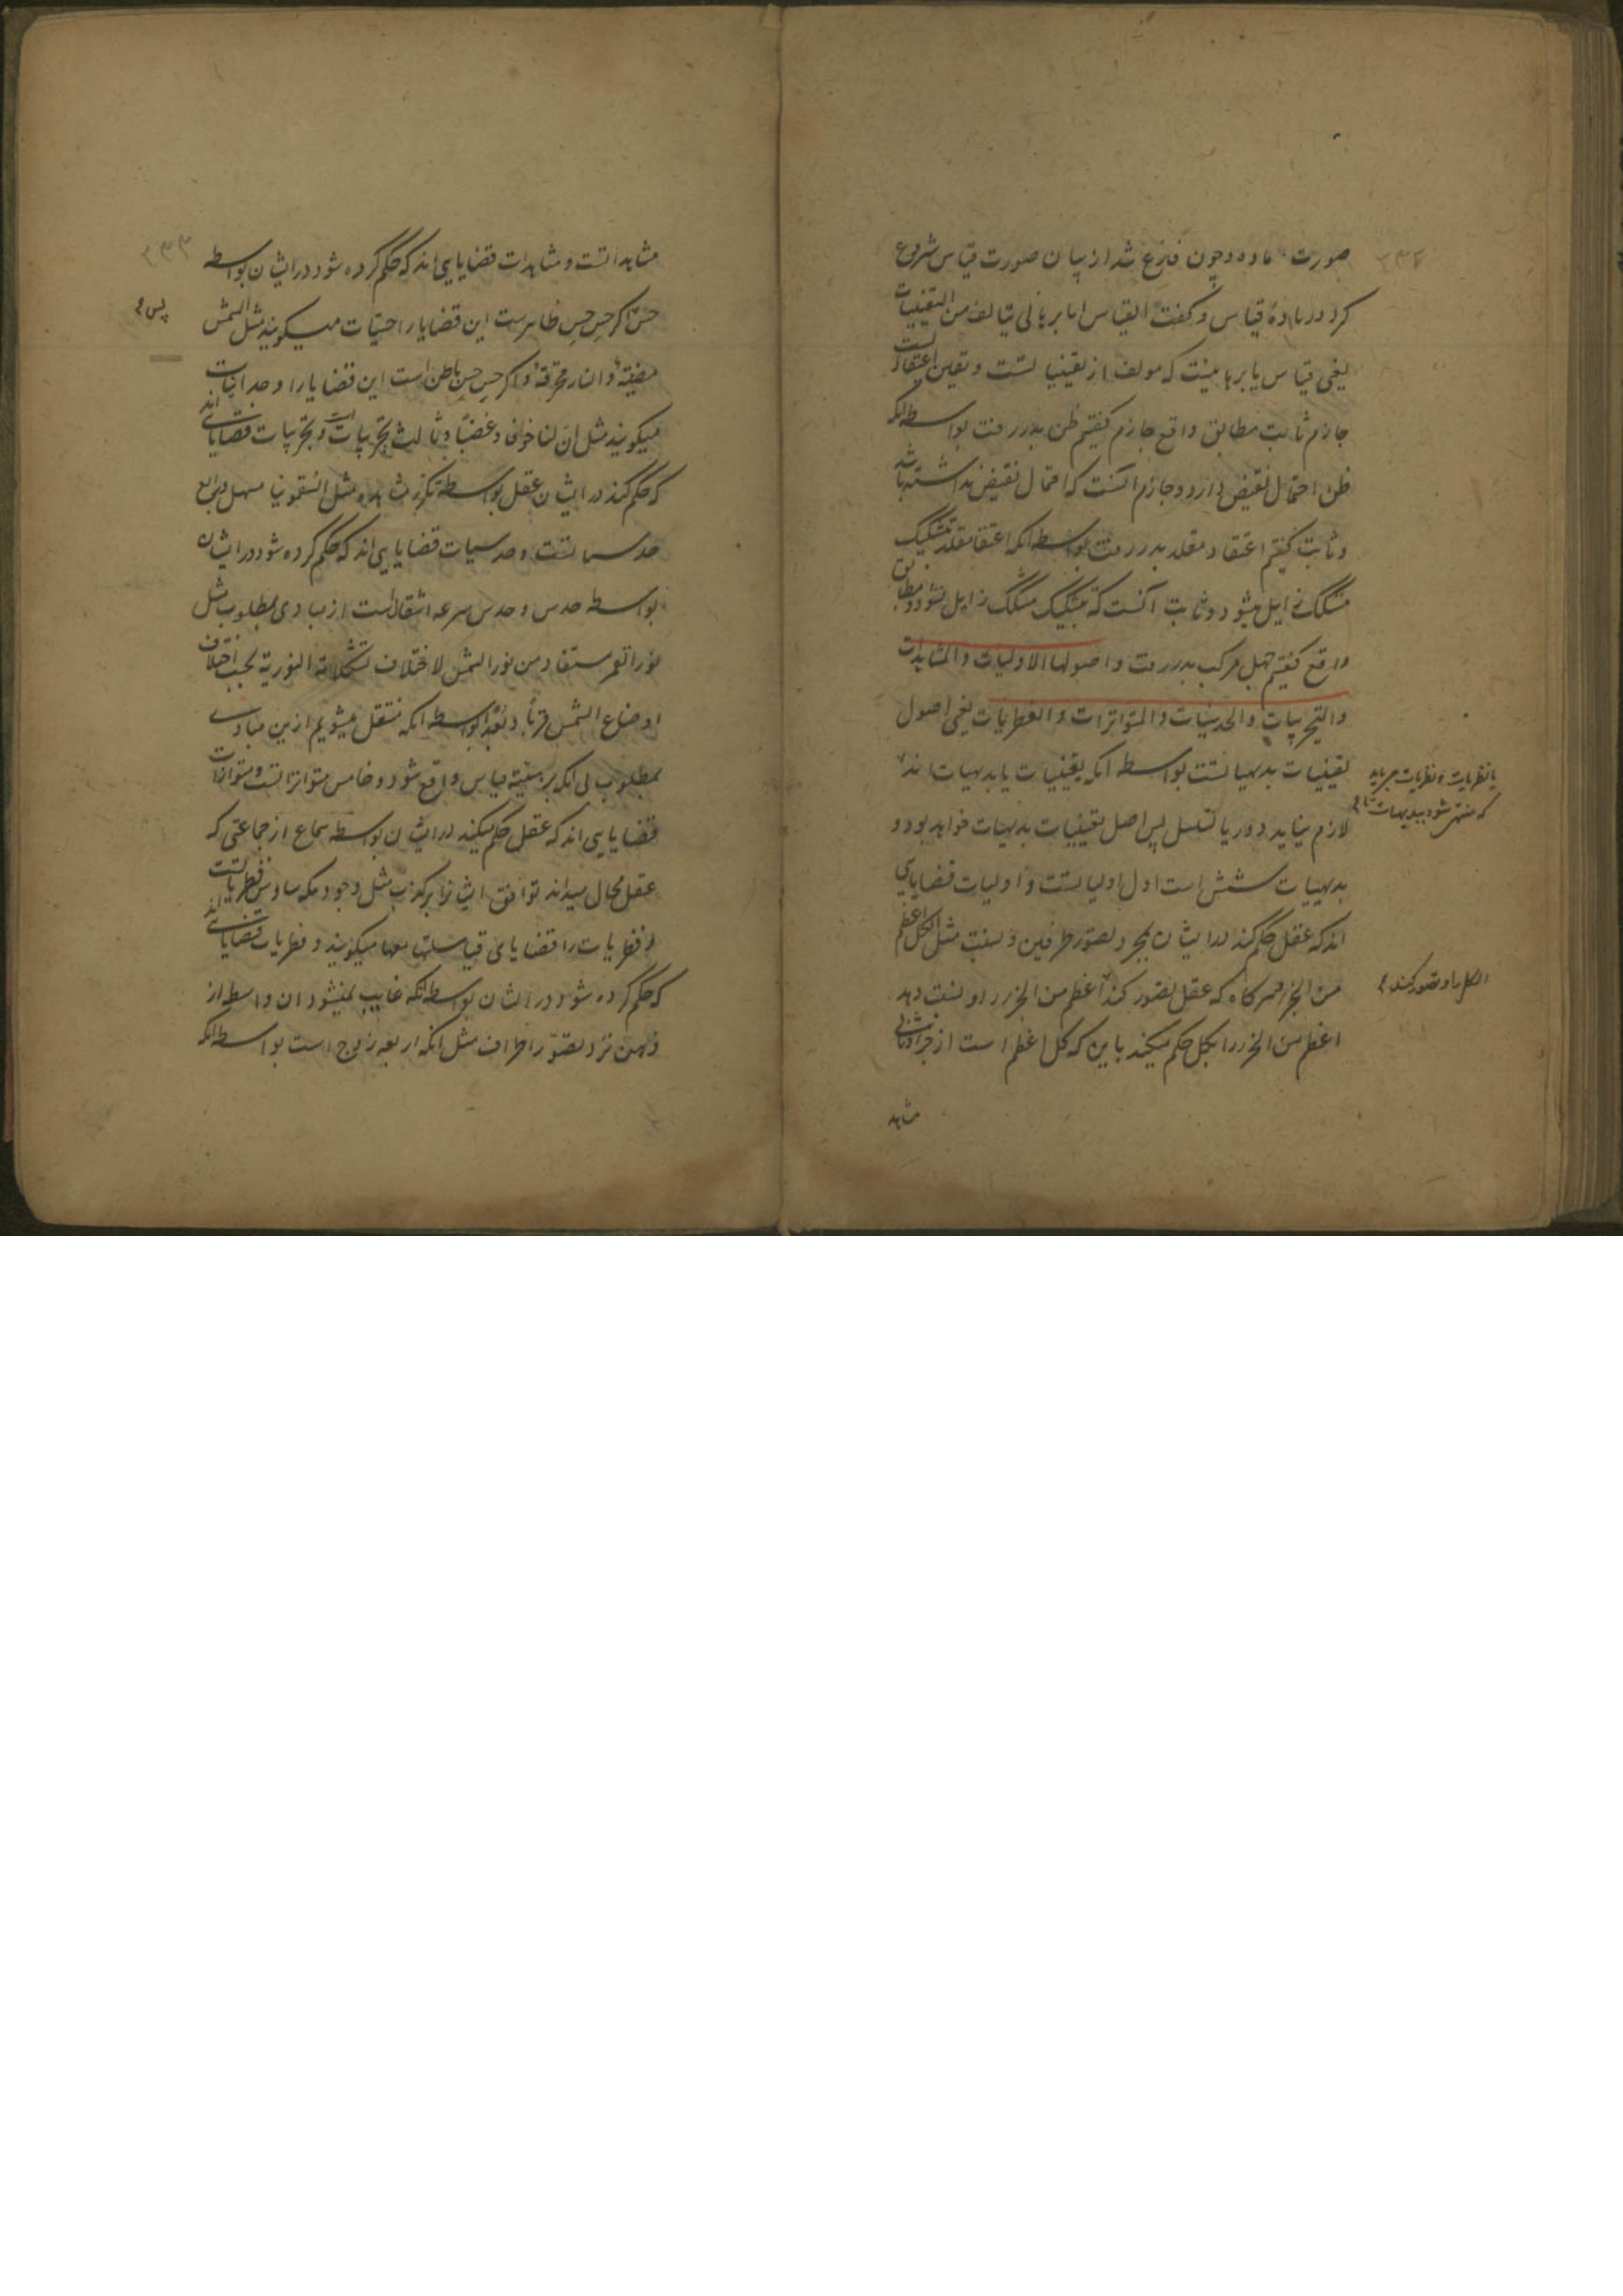 صورت ماده و چون فارغ شد از بیان صورت قیاس شروع
کرد در ماده قیاس و کفت القیاس اما برهانی یتالف من الیقینیات
یعنی قیاس یا برهانیست که مولف از یقینیاتست و یقین اعتقادیست
جازم ثابت مطابق واقع جازم کفتیم ظن بدر رفت بواسطه انکه
ظن احتمال نقیض دارد و جازم انست که احتمال نقیض نداشته باشد
و ثابت کفتیم اعتقاد مقلد بدر رفت بواسطه انکه اعتقاد مقلد بتشکیک
مشکک زایل میشود و ثابت آنست که بتشکیک مشکک زایل نشود و مطابق
واقع کفتیم جهل مرکب بدر رفت و اصولها الاولیات والمشاهدات
والتجربیات والحدسیات والمتواترات والفطریات یعنی اصول
یقینیات بدیهیاتست بواسطه انکه یقینیات یا بدیهیات اند
یا نظریات و نظریات می باید
که منتهی شود ببدیهیات تا
لازم نیاید دور یا تسلسل پس اصل یقینیات بدیهیات خواهد بود و
بدیهیات شش است اول اولیاتست و اولیات قضایایی
اند که عقل حکم کند در ایشان بمجرد تصور طرفین و نسبت مثل الکل اعظم
من الجزء هرکاه که عقل تصور کند اعظم من الجزء را و نسبت دهد
الکل را و تصور کند
اعظم من الجزء را بکل حکم میکند باین که کل اعظم است از جزء و ثانی
مشاهد
۳۳۳
مشاهداتست و مشاهدات قضایایی اند که حکم کرده شود در ایشان بواسطه
حس کر حس حس ظاهرست این قضایا را حسیات میکویند مثل الشمس
پس
مضیئة والنار محرقة و اکر حس حس باطن است این قضایا را وجدانیات
میکویند مثل ان لنا خوفا و غضبا و ثالث تجربیات است و تجربیات قضایایی اند
که حکم کند در ایشان عقل بواسطه تکرر مشاهده مثل السقمونیا مسهل و رابع
حدسیاتست و حدسیات قضایایی اند که حکم کرده شود در ایشان
بواسطه حدس و حدس سرعه انتقالست از مبادی بمطلوب مثل
نور القمر مستفاد من نور الشمس لاختلاف تشکلاته النوریة بحسب اختلاف
اوضاع الشمس قربا و بعدا بواسطه انکه منتقل میشویم ازین مبادی
بمطلوب بی انکه برهیئة قیاس واقع شود و خامس متواتراتست و متواترات
قضایایی اند که عقل حکم میکند در ایشان بواسطه سماع از جماعتی که
عقل محال میداند توافق ایشانرا بر کذب مثل وجود مکه سادس فطریاتست
و فطریات را قضایای قیاساتها معها میکویند و فطریات قضایایی اند
که حکم کرده شود در ایشان بواسطه انکه غایب نمیشود ان واسطه از
ذهن نزد تصور اطراف مثل انکه اربعه زوج است بواسطه انکه